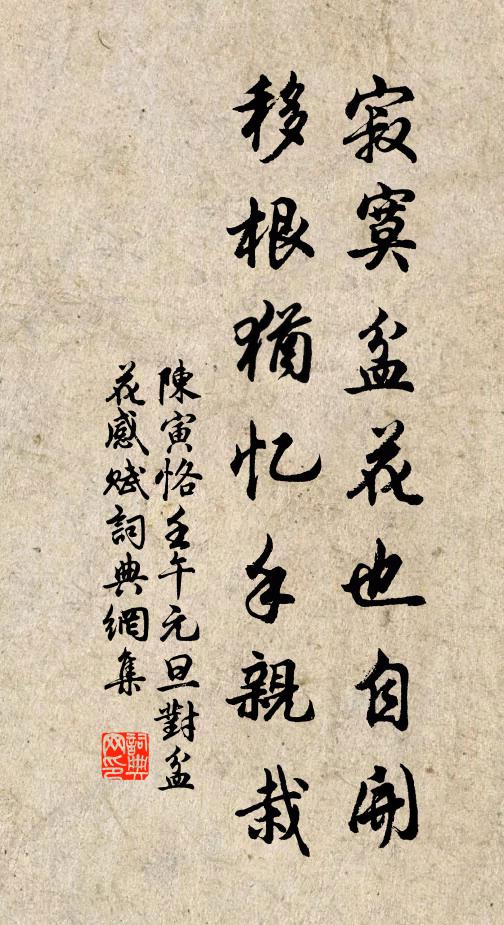 寂寞盆花也自開
移根猶忆手親栽
陳寅恪壬午元旦對盆
花感賦詞典網集
詞典
网印